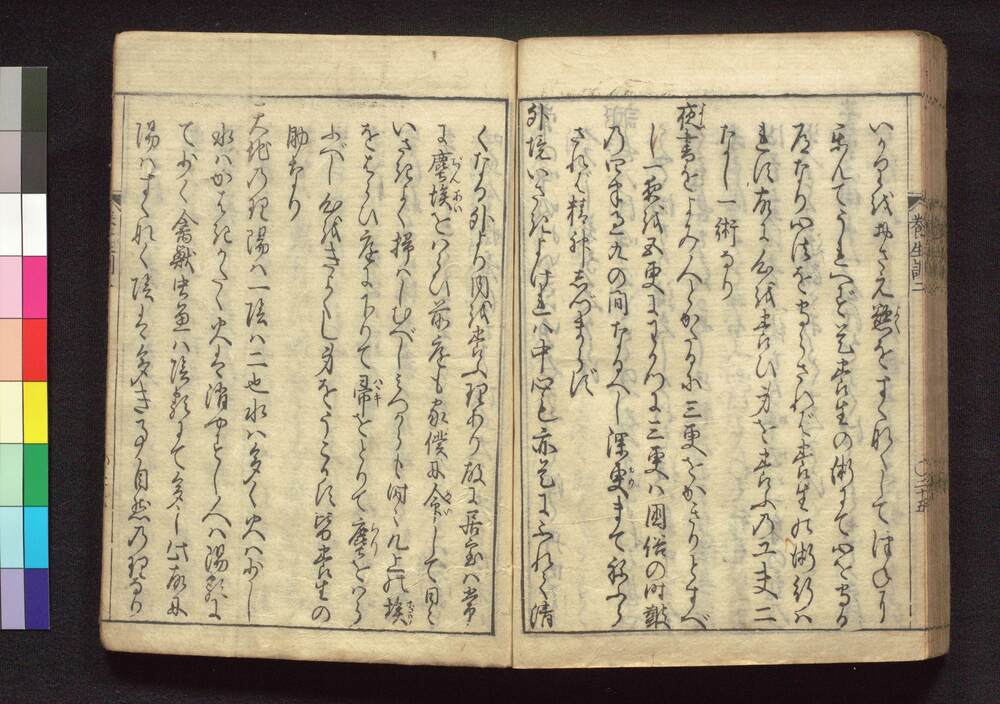 いかりをおさえ慾をすくなくしてつねに
楽んでうれへず是養生の術にて心を守る
道なり心法を守らざれば養生の術行は
れず故に心を養ひ身を養ふの工夫二
なし一術なり
夜書をよみ人とかたるに三更をかぎりとすべ
し一夜を五更にわかつに三更ハ國俗の時皷
乃四半過九の間なるべし深更まてねふら
されば精神しづまらず
外境いさぎよければ中心も亦是にふれて清
養生訓二
くなる外より内を養ふ理あり故に居室ハ常
に塵埃をはらひ前庭も家僕に命じて日々
いさぎよく掃ハしむべしみづからも時々几上の埃
をはらひ庭に下りて帚をとりて塵をはら
ふべし心をきよくし身をうごかす皆養生の
助なり
天地乃理陽ハ一陰ハ二也水ハ多く火ハ少し
水ハかはきがたく火は消やすし人ハ陽類に
て少く禽獣虫魚ハ陰類にて多し此故に
陽ハすくなく陰は多き事自然乃理なり